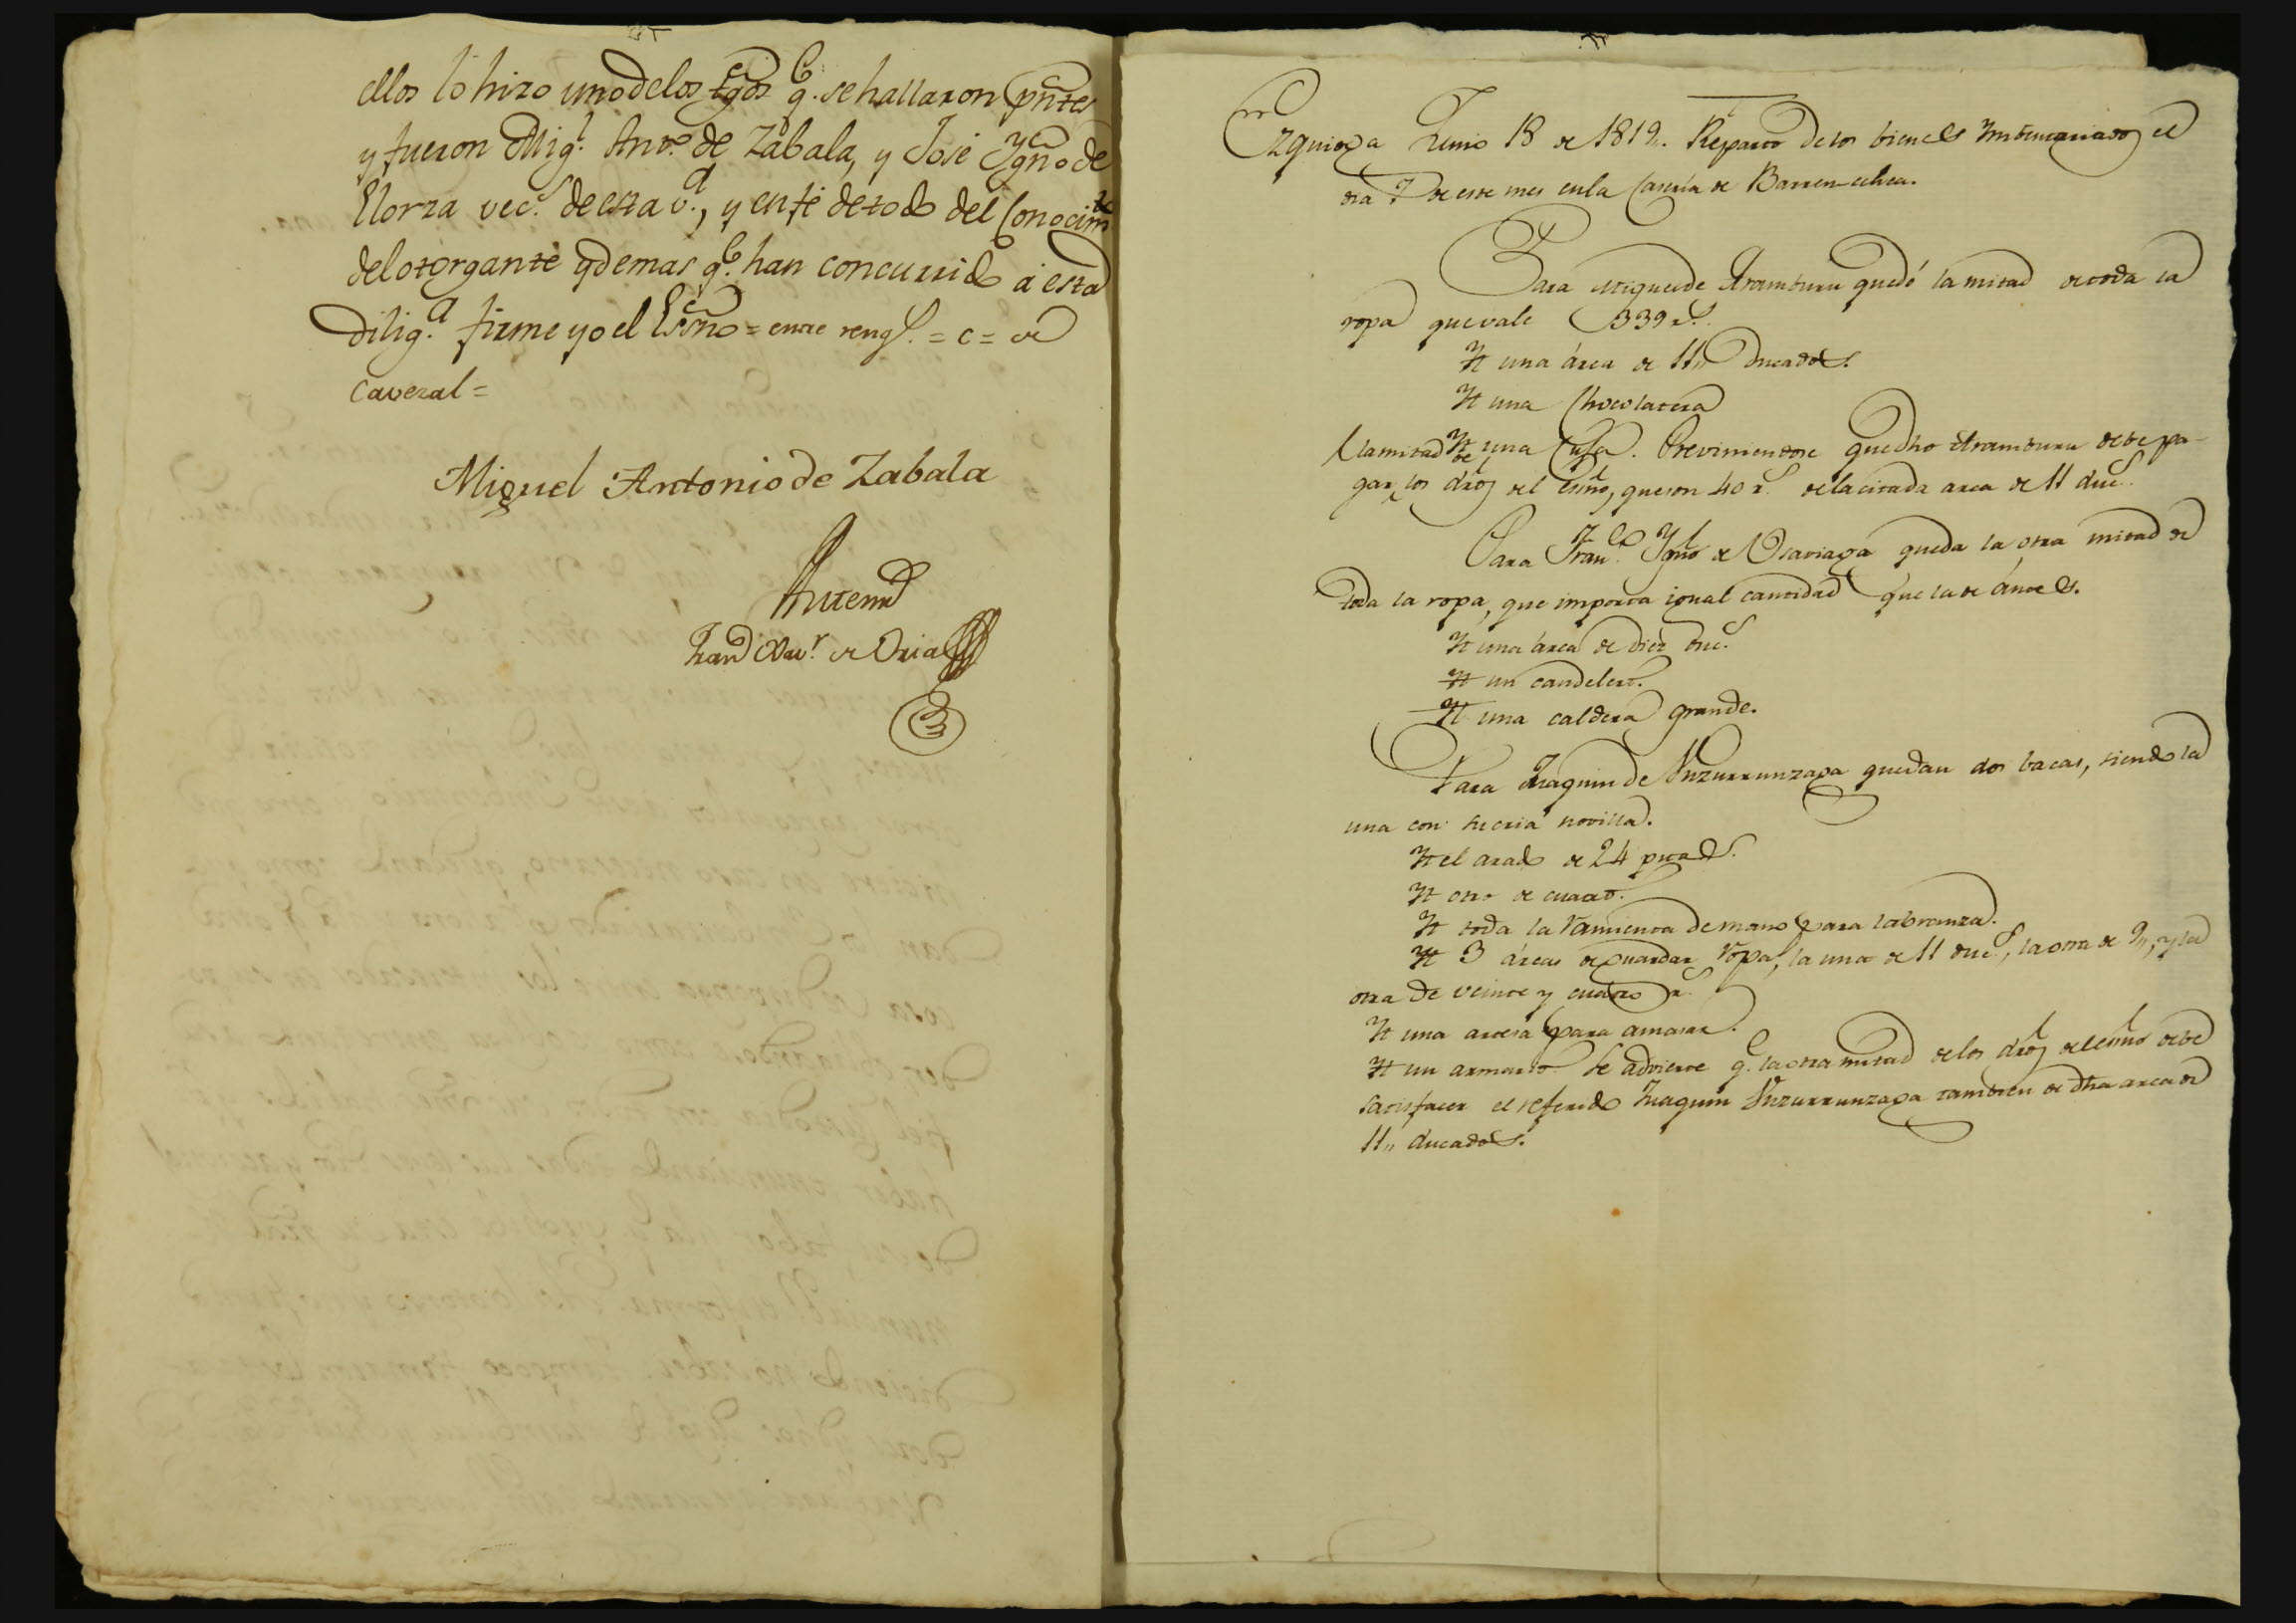 ellos lo hizo uno delos tgos q.e se hallaron pñtes
y fueron Mig.l Ant.o de Zabala, y José Ygn.o de
Elorza vec.s de esta v.a, y en fé de todo del Conocim.to
del otorgante y demas q.e han concurrido á esta
dilig.a firme yo el Esno = entre rengl.s = c = de
cavezal =
Miguel Antonio de Zabala
Antemi
Fran.co Xav.r de Oria
Ezquioga Junio 18 de 1819,,. Reparto de los bienes Imbentariados el
dia 7 de este mes en la Caseria de Barrenechea.
Para Miguel de Aramburu quedó la mitad de toda la
ropa que vale 339 r.s
Yt una árca de 11,, Ducados.
Yt una Chocolatera
Yt una Cuja. Previniendose que dho Aramburu debe pa-
la mitad de
gar los dros del esno, que son 40 r.s de la citada arca de 11 duc.s
Para Fran.co Ygn.o de Olaviaga queda la otra mitad de
toda la ropa, que importa igual cantidad que la de ántes.
Yt una árca de diez duc.s
Yt un candelero.
Yt una caldera grande.
Para Juaquin de Unzurrunzaga quedan dos bacas, siendo la
una con su cria novilla.
Yt el arado de 24 puads.
Yt otro de cuatro.
Yt toda la ramienta de mano para labranza.
Yt 3 árcas de guardar ropa, la una de 11 duc.s, la otra de 9,, y la
otra de veinte y cuatro r.s
Yt una artesa para amasar.
Yt un armario. Se advierte q.e la otra mitad de los dros del esno debe
satisfacer el referido Juaquin Unzurrunzaga tambien de dha arca de
11,, ducados.